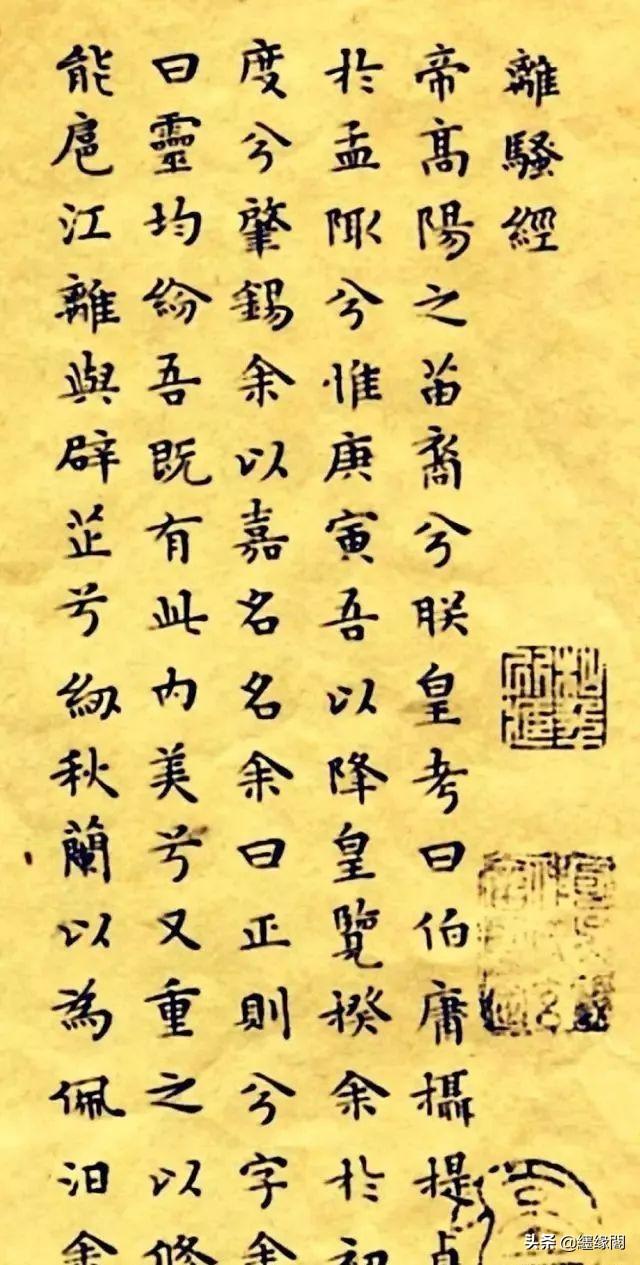 離騷經
帝高陽之苗裔兮朕皇考曰伯庸攝提貞
於孟陬兮惟庚寅吾以降皇覽揆余於初
度兮肇錫余以嘉名名余曰正則兮字余
曰靈均紛吾既有此內美兮又重之以修
能扈江離與辟芷兮紉秋蘭以為佩汩余
头条